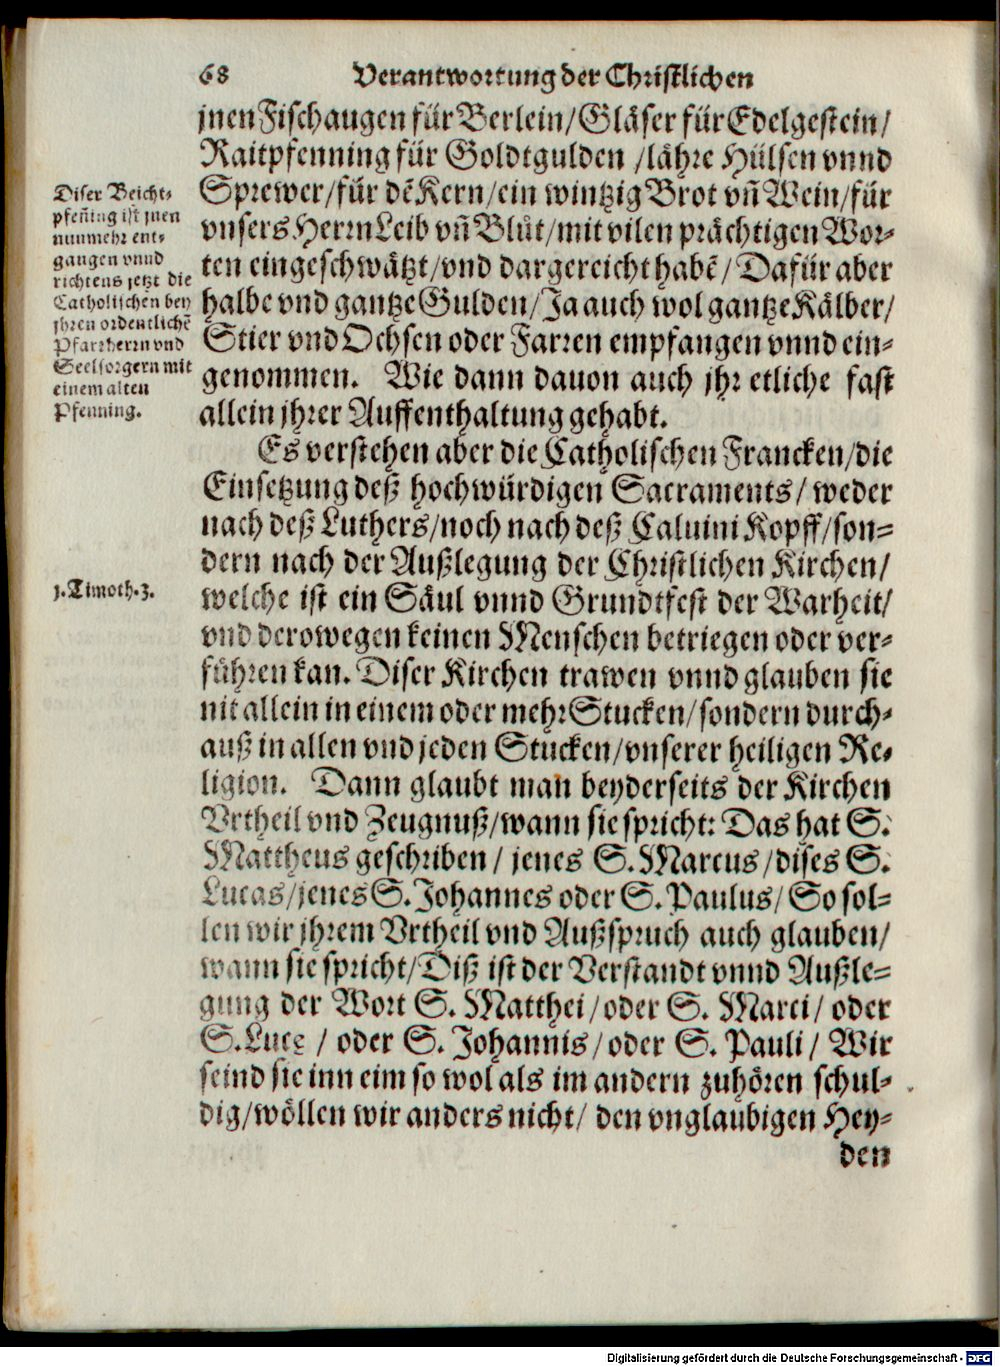 68 Verantwortung der Christlichen
jnen Fischaugen für Berlein/Gläser für Edelgestein/
Raitpfenning für Goldtgulden /lähre Hülsen vnnd
Sprewer/für dẽ Kern/ein wintzig Brot vñ Wein/für
vnsers Herrn Leib vñ Blůt/mit vilen prächtigen Wor-
ten eingeschwätzt/vnd dargereicht habẽ/ Dafür aber
halbe vnd gantze Gulden/Ja auch wol gantze Kälber/
Stier vnd Ochsen oder Farren empfangen vnnd ein-
genommen. Wie dann dauon auch jhr etliche fast
allein jhrer Auffenthaltung gehabt.
Diser Beicht-
pfeñing ist jnen
nunmehr ent-
gangen vnnd
richtens jetzt die
Catholischen bey
jhren ordentlichẽ
Pfarrherrn vnd
Seelsorgern mit
einem alten
Pfenning.
Es verstehen aber die Catholischen Francken/die
Einsetzung deß hochwürdigen Sacraments/ weder
nach deß Luthers/noch nach deß Caluini Kopff/son-
dern nach der Außlegung der Christlichen Kirchen/
welche ist ein Säul vnnd Grundtfest der Warheit/
1.Timoth.3.
vnd derowegen keinen Menschen betriegen oder ver-
führen kan. Diser Kirchen trawen vnnd glauben sie
nit allein in einem oder mehr Stucken/sondern durch-
auß in allen vnd jeden Stucken/vnserer heiligen Re-
ligion. Dann glaubt man beyderseits der Kirchen
Vrtheil vnd Zeugnuß/wann sie spricht: Das hat S.
Mattheus geschriben/ jenes S. Marcus/dises S.
Lucas/jenes S. Johannes oder S. Paulus/ So sol-
len wir jhrem Vrtheil vnd Außspruch auch glauben/
wann sie spricht/Diß ist der Verstandt vnnd Außle-
gung der Wort S. Matthei/oder S. Marci/ oder
S. Lucę / oder S. Johannis/oder S. Pauli/ Wir
seind sie inn eim so wol als im andern zuhören schul-
dig/wöllen wir anders nicht/ den vnglaubigen Hey-
den
Digitalisierung gefördert durch die Deutsche Forschungsgemeinschaft - DFG